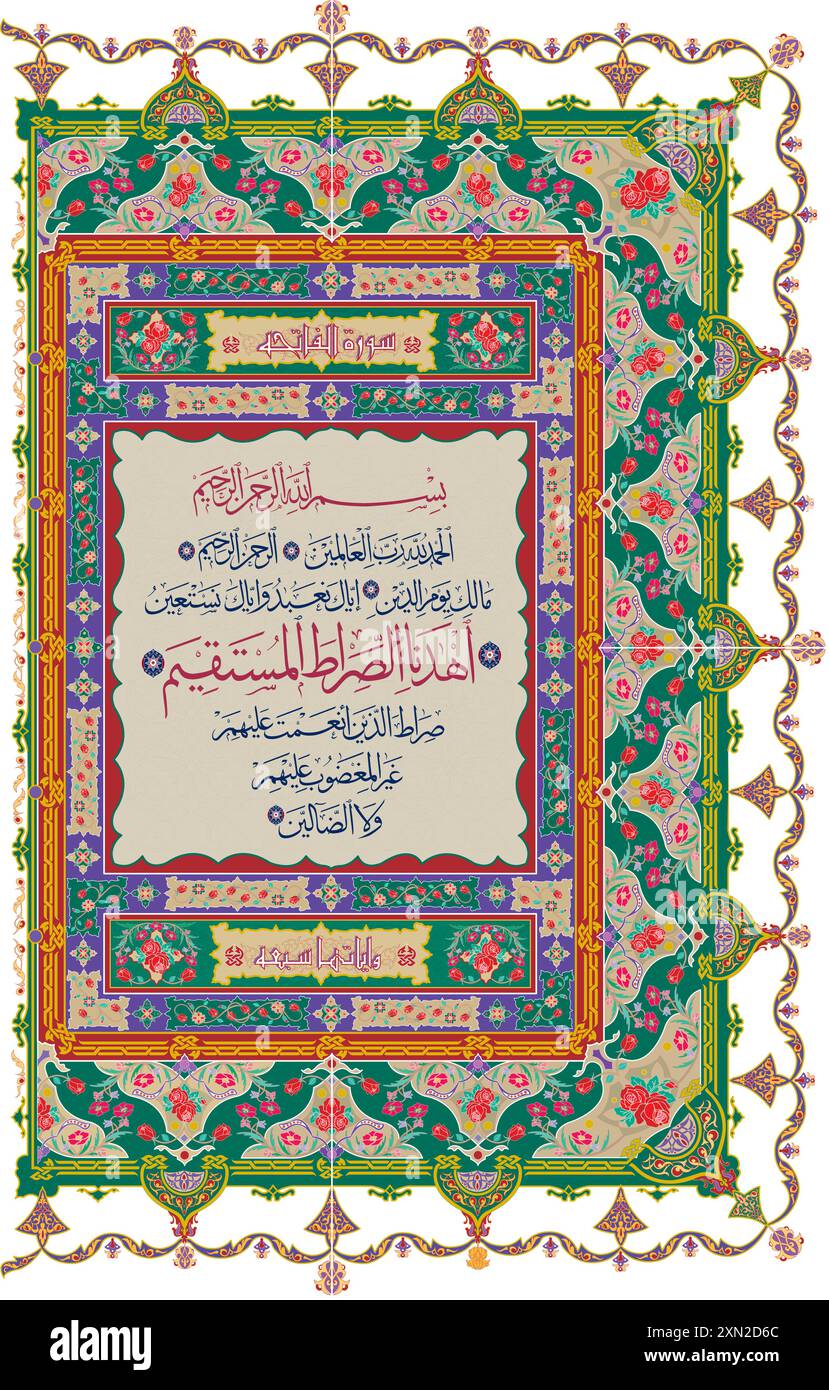 سورة الفاتحه
بسم الله الرحمن الرحيم
الحمد لله رب العالمين الرحمن الرحيم
مالك يوم الدين إياك نعبد وإياك نستعين
أهدنا الصراط المستقيم
صراط الذين أنعمت عليهم
غير المغضوب عليهم
ولا الضالين
واياتها سبعه
alamy
Image ID: 2XN2D6C
www.alamy.com